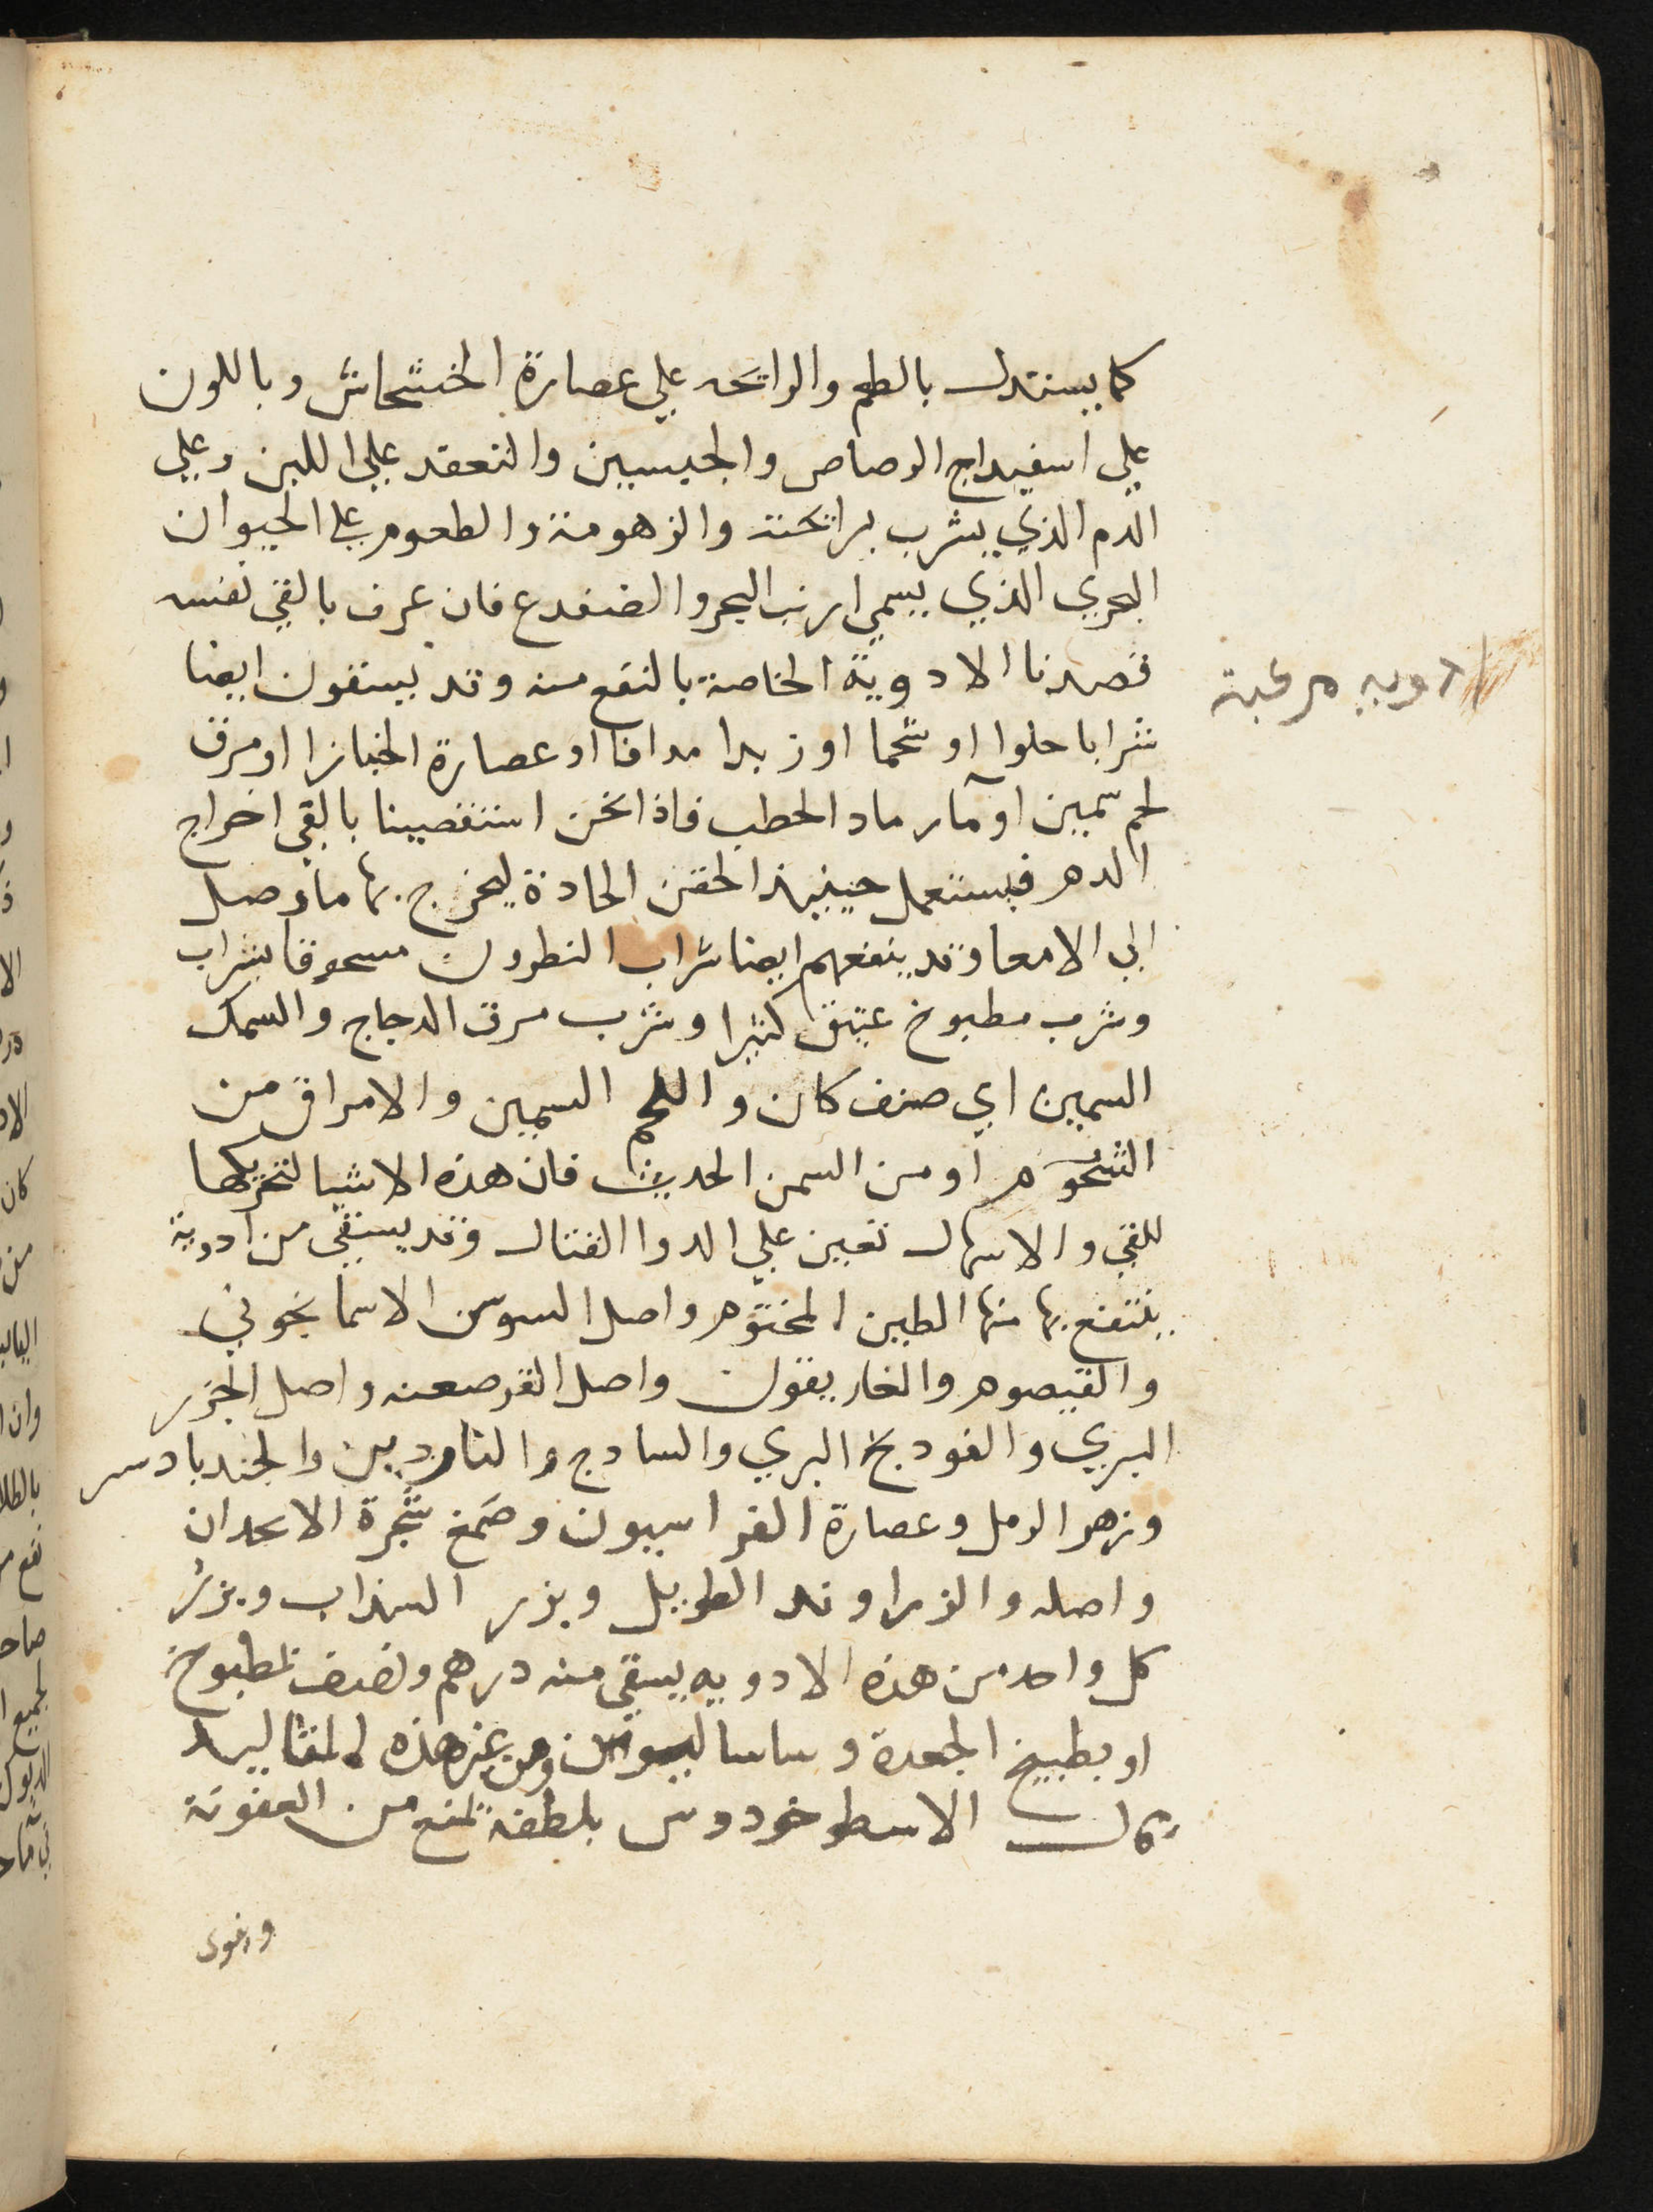 كما يستدل بالطعم والرائحه علي عصارة الخشخاش وباللون
علي اسفيداج الرصاص والجبسين والتعقد علي اللبن وعلي
الدم الذي يشرب برائحته والزهومة والطعوم علي الحيوان
البحري الذي يسمي ارنب البحر والضفدع فان عرف بالقي نفسه
قصدنا الادوية الخاصة بالنفع منه وقد يسقون ايضا
شرابا حلوا او شحما او زبدا مدافا او عصارة الخبازا او مرق
لحم سمين او مآ رماد الحطب فاذا نحن استقصينا بالقي اخراج
الدم فيستعمل حينيذ الحقن الحادة ليخرج بها ما وصل
الي الامعا وقد ينفعهم ايضا شراب النطرون مسحوقا بشراب
وشرب مطبوخ عتيق كثيرا وشرب مرق الدجاج والسمك
السمين اي صنف كان واللحم السمين والامراق من
الشحوم او من السمن الحديث فان هذه الاشيا لتحريكها
للقي والاسهال تعين علي الدوا القتال وقد يستقي من ادوية
ينتفع بها منها الطين المختوم واصل السوسن الاسمانجوني
والقيصوم والغاريقون واصل القرصعنه واصل الجزر
البري والفودنج البري والسادج والناردين والجندبادستر
وزهر الرمل وعصارة الفراسيون وصمغ شجرة الانجدان
واصله والزراوند الطويل وبزر السذاب وبزر
كل واحد من هذه الادويه يسقي منه درهم ونصف بمطبوخ
او بطبيخ الجعدة وساساليوس ومن غير هذه المقاليد
قال الاسطوخودوس بلطفه تمنع من العفونة
ويقوي
ادويه مركبة